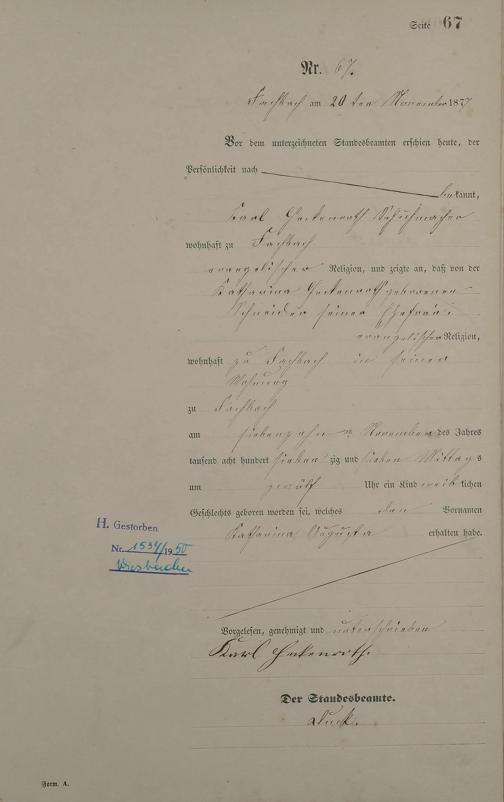 Seite 67
Nr. 67.
Fachbach am 20 ten November 1877
Vor dem unterzeichneten Standesbeamten erschien heute, der
Persönlichkeit nach
bekannt,
Karl Heckenroth Schuhmacher
wohnhaft zu Fachbach
evangelischer Religion, und zeigte an, daß von der
Katharina Heckenroth geborenen
Schneider seiner Ehefrau
evangelischer Religion,
wohnhaft zu Fachbach in seiner
Wohnung
zu Fachbach
am siebenzehn November des Jahres
tausend acht hundert sieben zig und sieben Mittags
um zwölf Uhr ein Kind weib lichen
Geschlechts geboren worden sei, welches den Vornamen
Katharina Augusta erhalten habe.
H. Gestorben
Nr. 1534/1950
Wiesbaden
Vorgelesen, genehmigt und unterschrieben
Karl Heckenroth.
Der Standesbeamte.
Form. A.